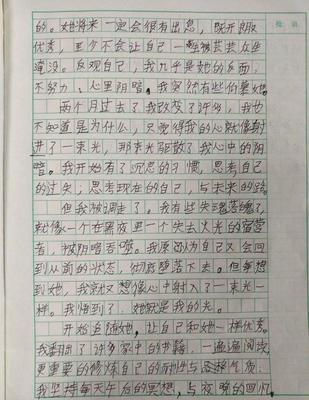 的。她将来一定会很有出息，既开朗
优秀，更少不会让自己一 被芸芸众生
淹没。反观自己，我几乎是她的反面，
不努力、心里阴暗。我突然有些伯
两个月过去了，我改变了许多，我也
不知道是为什么，只觉得我的心就像射
进了一束光，那束光驱散了我心中的阴
暗。我开始有了沉思的习惯，思考自己
的过失，思考现在的自己，与未来的路。
但我被调走了。我有些失魂落魄了，
就像一个在黑夜里一个失去火光的宿营
者，被阴暗吞噬。我原以为自己又会回
到从前的状态，彻底堕落下去。但每想
到她，我就又想像心中射入了一束光一
样。我悟到了，她就是我的光。
开始追随她，让自己和她一样优秀。
我翻出了许多家中的书籍，一遍遍阅读，
更重要的修炼自己的耐性与 气质，
我坚持每天午后的冥想，与夜晚的回忆，